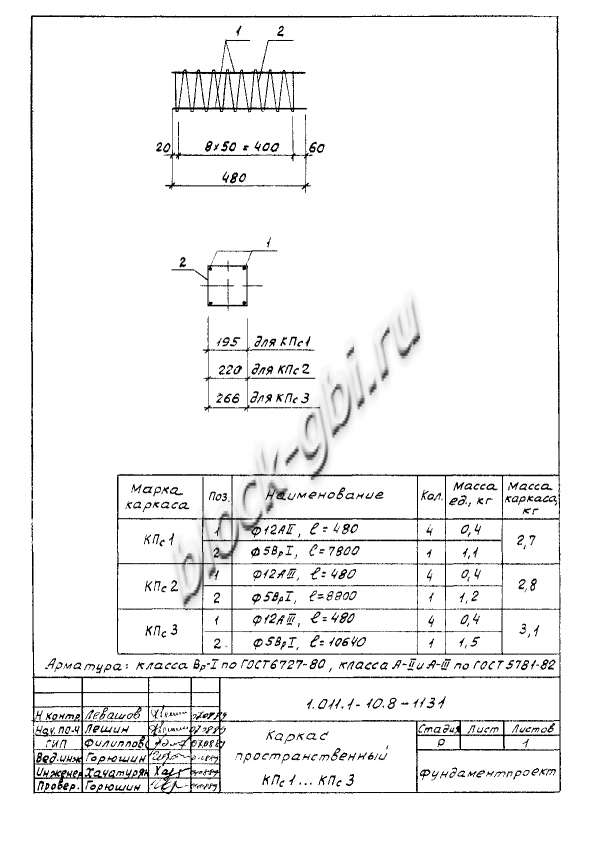 1 2
20 8×50 = 400 60
480
1
2
195 для КПс1
220 для КПс2
266 для КПс3
block-gbi.ru
Марка каркаса Поз. Наименование Кол. Масса ед., кг Масса каркаса, кг
КПс1 1 Ф12АII, ℓ = 480 4 0,4 2,7
2 Ф5ВрI, ℓ = 7800 1 1,1
КПс2 1 Ф12АIII, ℓ = 480 4 0,4 2,8
2 Ф5ВрI, ℓ = 8800 1 1,2
КПс3 1 Ф12АIII, ℓ = 480 4 0,4 3,1
2. Ф5ВрI, ℓ = 10640 1 1,5
Арматура: класса Вр-I по ГОСТ 6727-80, класса А-II и А-III по ГОСТ 5781-82
1.011.1-10.8-1131
Н контр Левашов
Нач.по-ч Лешин
ГИП Филиппов
Вед.инж Горюшин
Инженер Хачатурян
Провер. Горюшин
Каркас
пространственный
КПс1...КПс3
Стадия Лист Листов
Р 1
Фундаментпроект